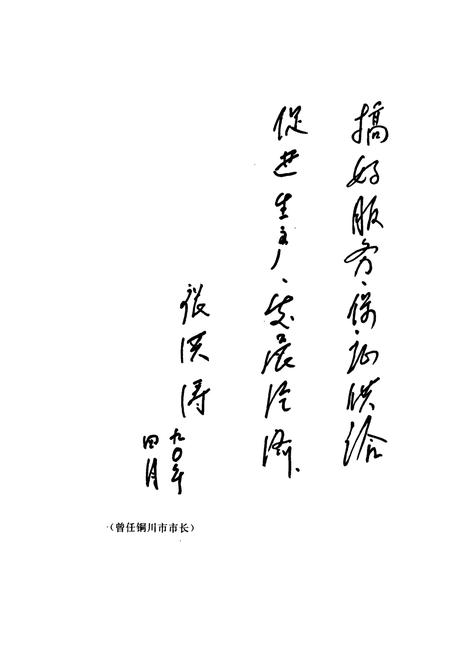 搞好服务、保证供给
促进生产、发展经济.
张洪涛
九〇年
四月
(曾任铜川市市长)